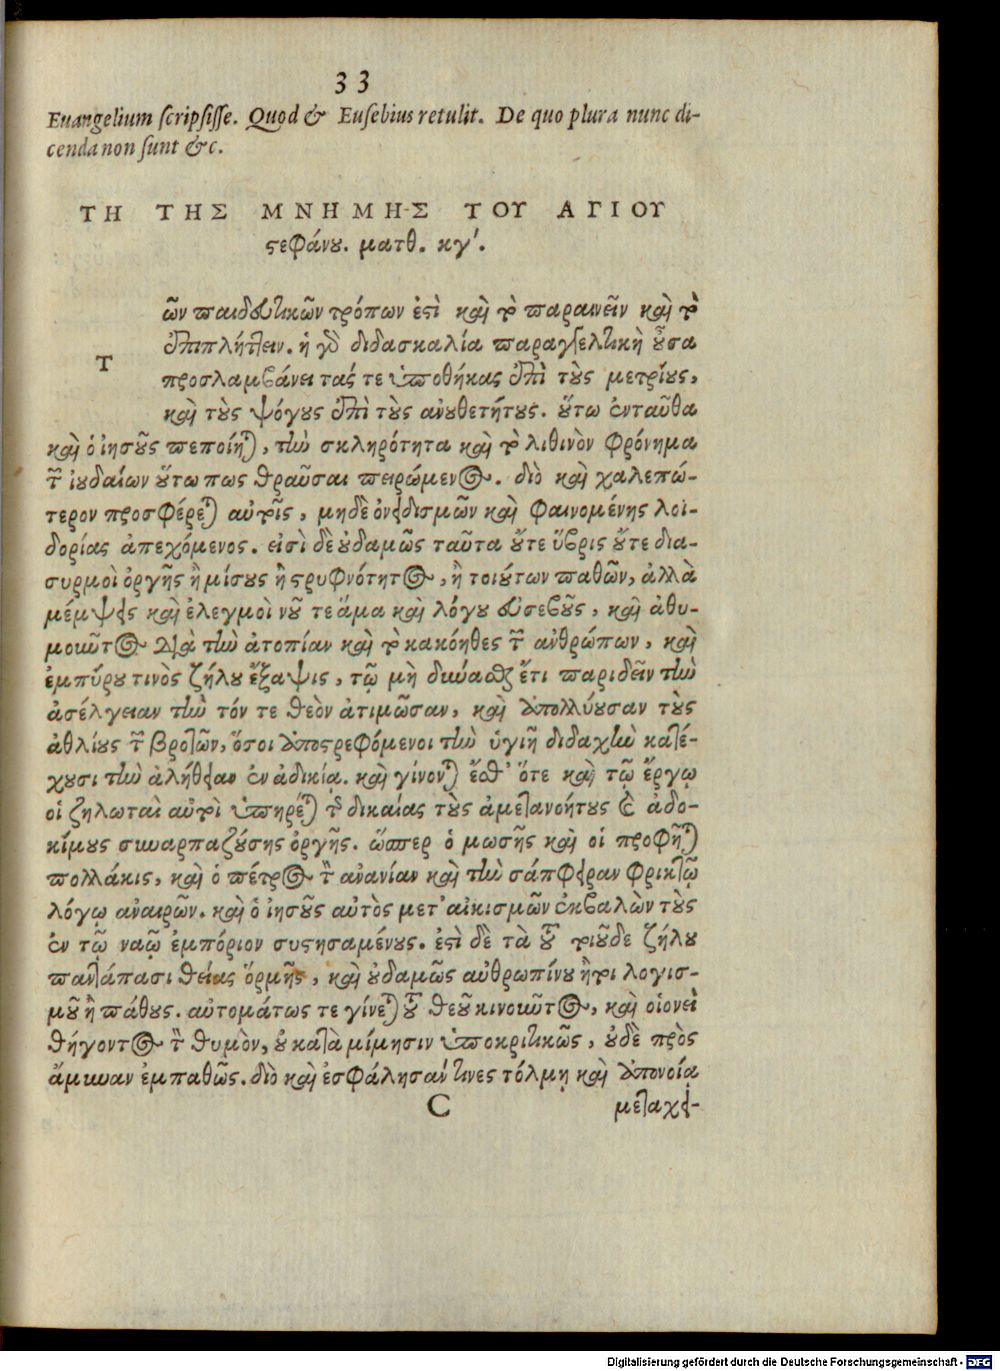 33
Euangelium scripsisse. Quod & Eusebius retulit. De quo plura nunc di-
cenda non sunt &c.
ΤΗ ΤΗΣ ΜΝΗΜΗΣ ΤΟΥ ΑΓΙΟΥ
στεφάνου. ματθ. κγ΄.
Τ
ῶν παιδευτικῶν τρόπων ἐστὶ καὶ τὸ παραινεῖν καὶ τὸ
ἐπιπλήττειν. ἡ γὸ διδασκαλία παραγγελτικὴ οὖσα
προσλαμβάνει τάς τε ὑποθήκας ἐπὶ τοὺς μετρίους,
καὶ τοὺς ψόγους ἐπὶ τοὺς ἀνουθετήτους. οὕτω ἐνταῦθα
καὶ ὁ ἰησοῦς πεποίηται, τὴν σκληρότητα καὶ τὸ λιθινὸν φρόνημα
τῶν ἰουδαίων οὕτω πως θραῦσαι πειρώμενος. διὸ καὶ χαλεπώ-
τερον προσφέρεται αὐτοῖς, μηδὲ ὀνειδισμῶν καὶ φαινομένης λοι-
δορίας ἀπεχόμενος. εἰσὶ δὲ οὐδαμῶς ταῦτα οὔτε ὕβρις οὔτε δια-
συρμοὶ ὀργῆς ἢ μίσους ἢ στρυφνότητος, ἢ τοιούτων παθῶν, ἀλλὰ
μέμψεις καὶ ἐλεγμοὶ νοῦ τε ἅμα καὶ λόγου εὐσεβοῦς, καὶ ἀθυ-
μοιωῦτος διὰ τὴν ἀτοπίαν καὶ τὸ κακόηθες τῶν ἀνθρώπων, καὶ
ἐμπύρου τινὸς ζήλου ἔξαψις, τῷ μὴ δύνασθαι ἔτι παριδεῖν τὴν
ἀσέλγειαν τὴν τόν τε θεὸν ἀτιμῶσαν, καὶ ἀπολλύουσαν τοὺς
ἀθλίους τῶν βροτῶν, ὅσοι ἀποστρεφόμενοι τὴν ὑγιῆ διδαχὴν κατέ-
χουσι τὴν ἀλήθειαν ἐν ἀδικίᾳ. καὶ γίνονται ἔσθ' ὅτε καὶ τῷ ἔργῳ
οἱ ζηλωταὶ αὐτοὶ ὑπηρέται τῆς δικαίας τοὺς ἀμετανοήτους καὶ ἀδο-
κίμους συναρπαζούσης ὀργῆς. ὥσπερ ὁ μωσῆς καὶ οἱ προφῆται
πολλάκις, καὶ ὁ πέτρος τὸν ἀνανίαν καὶ τὴν σάπφειραν φρικτῷ
λόγῳ ἀναιρῶν. καὶ ὁ ἰησοῦς αὐτὸς μετ' αἰκισμῶν ἐκβαλὼν τοὺς
ἐν τῷ ναῷ ἐμπόριον συστησαμένους. ἐστὶ δὲ τὰ τοῦ τοιοῦδε ζήλου
παντάπασι θείας ὁρμῆς, καὶ οὐδαμῶς ἀνθρωπίνου ἤτοι λογισ-
μοῦ ἢ πάθους. αὐτομάτως τε γίνεται τοῦ θεοῦ κινοιωῦτος, καὶ οἱονεὶ
θήγοντος τὸν θυμὸν, οὐ κατὰ μίμησιν ὑποκριτικῶς, οὐδὲ πρὸς
ἄμυναν ἐμπαθῶς. διὸ καὶ ἐσφάλησάν τινες τόλμῃ καὶ ἀπονοίᾳ
C
μεταχει-
Digitalisierung gefördert durch die Deutsche Forschungsgemeinschaft - DFG